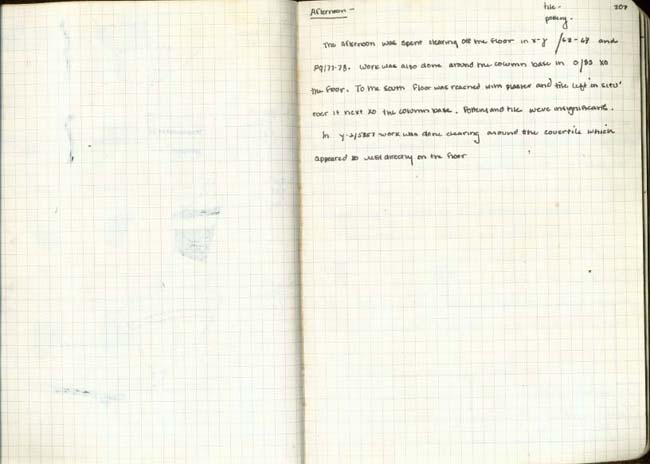 Afternoon - tile - 207
pottery -
The afternoon was spent clearing off the floor in x-y /62-67 and
pq/77-78. Work was also done around the column base in o/83 to
the floor. To the south floor was reached with plaster and tile left in situ
over it next to the column base. Pottery and tile were insignificant.
In y-z/ work was done clearing around the covertile which
appeared to rest directly on the floor